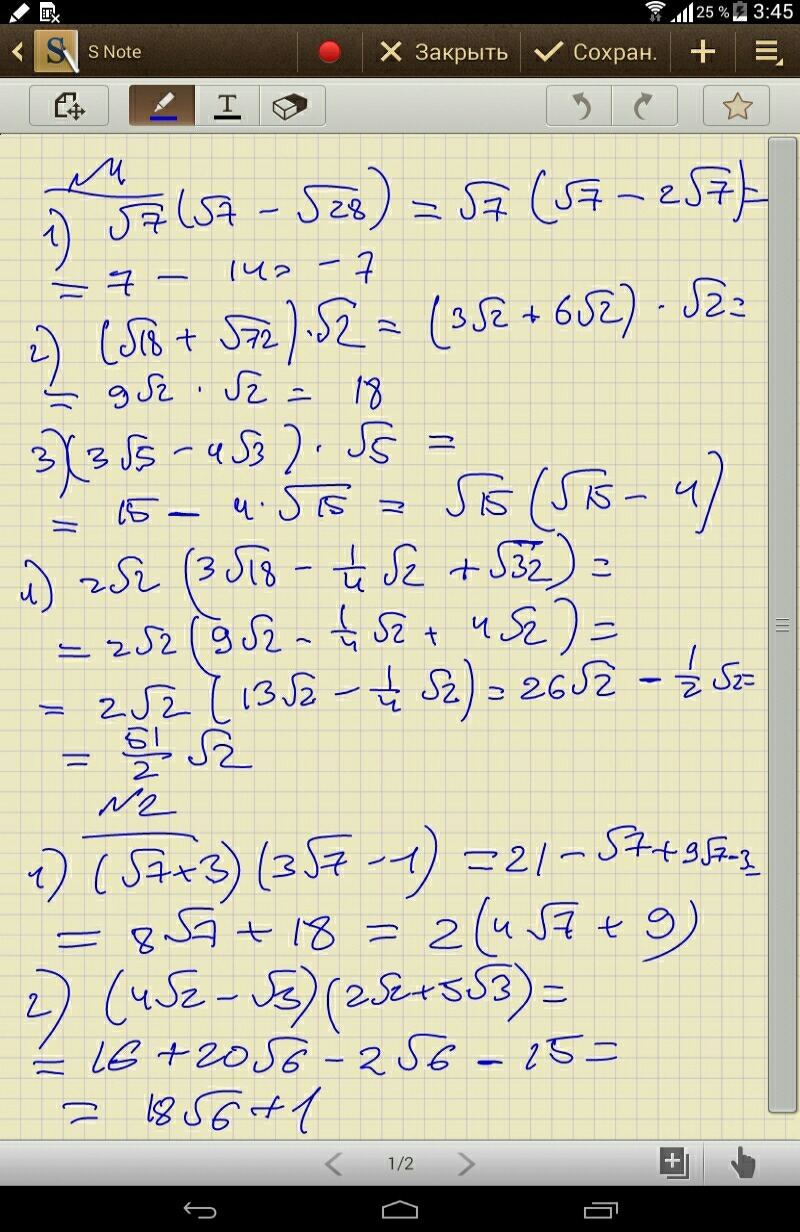 25 % 3:45
S Note Закрыть Сохран.
T
№1
1) √7(√7 - √28) = √7 (√7 - 2√7)=
= 7 - 14= -7
2) (√18 + √72)·√2 = (3√2 + 6√2) · √2=
= 9√2 · √2 = 18
3) (3√5 - 4√3) · √5 =
= 15 - 4·√15 = √15 (√15 - 4)
4) 2√2 (3√18 - 1/4 √2 + √32) =
= 2√2 (9√2 - 1/4 √2 + 4√2) =
= 2√2 (13√2 - 1/4 √2) = 26√2 - 1/2 √2=
= 51/2 √2
№2
1) (√7+3)(3√7-1) = 21 - √7+9√7-3=
= 8√7 + 18 = 2(4√7 + 9)
2) (4√2 - √3)(2√2+5√3) =
= 16 + 20√6 - 2√6 - 15 =
= 18√6 + 1
1/2